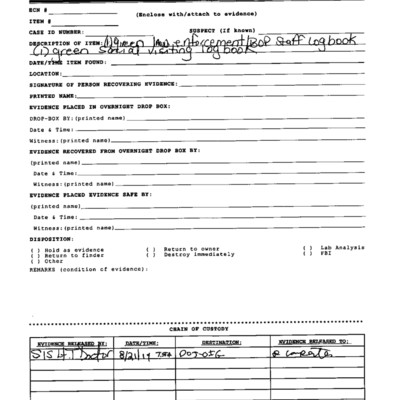 ECN #
(Enclose with/attach to evidence)
ITEM #
CASE ID NUMBER: SUSPECT (If known)
DESCRIPTION OF ITEM: (1) green law enforcement/BOP Staff Logbook
(1) green Social Visiting Logbook
DATE/TIME ITEM FOUND:
LOCATION:
SIGNATURE OF PERSON RECOVERING EVIDENCE:
PRINTED NAME:
EVIDENCE PLACED IN OVERNIGHT DROP BOX:
DROP-BOX BY:(printed name)
Date & Time:
Witness:(printed name)
EVIDENCE RECOVERED FROM OVERNIGHT DROP BOX BY:
(printed name)
Date & Time:
Witness:(printed name)
EVIDENCE PLACED EVIDENCE SAFE BY:
(printed name)
Date & Time:
Witness:(printed name)
DISPOSITION:
( ) Hold as evidence ( ) Return to owner ( ) Lab Analysis
( ) Return to finder ( ) Destroy immediately ( ) FBI
( ) Other
REMARKS (condition of evidence):
CHAIN OF CUSTODY
EVIDENCE RELEASED BY: DATE/TIME: DESTINATION: EVIDENCE RELEASED TO:
SIS 8/21/19 DOJ-OIG